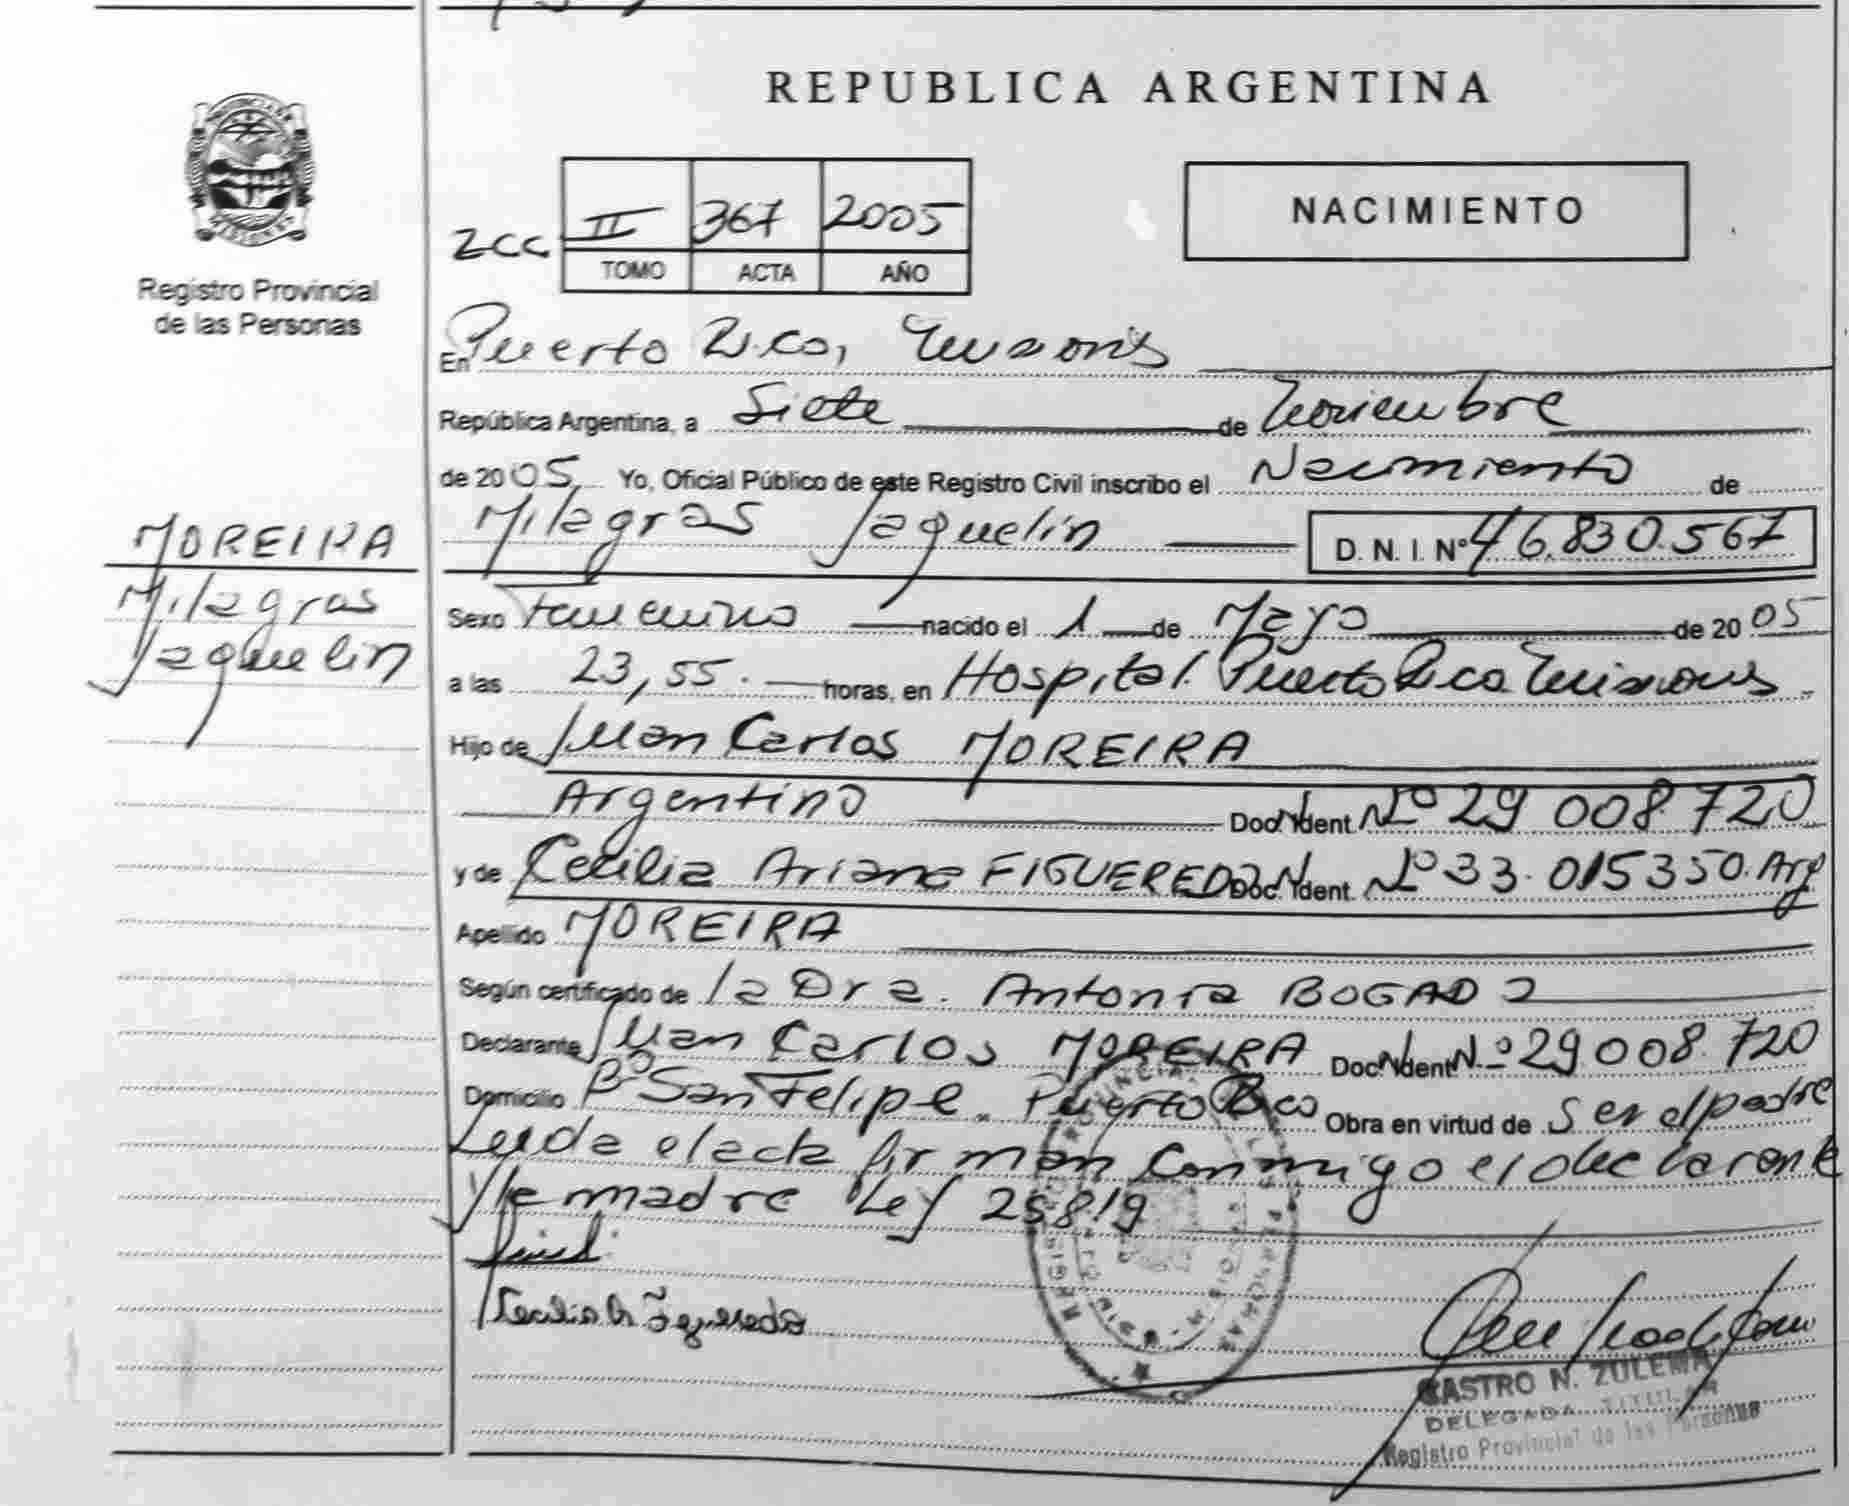 REPUBLICA ARGENTINA
NACIMIENTO
II 367 2005
TOMO ACTA AÑO
Registro Provincial
de las Personas
En Puerto Rico, Misiones
República Argentina, a Siete de Noviembre
de 2005 Yo, Oficial Público de este Registro Civil inscribo el Nacimiento de
Milagros Jaquelin D. N. I. Nº 46.830.567
MOREIRA
Milagros
Jaquelin
Sexo Femenino nacido el 1 de Mayo de 2005
a las 23,55. horas, en Hospital. Puerto Rico Misiones
Hijo de Juan Carlos MOREIRA
Argentino Doc. Ident. Nº 29 008.720
y de Cecilia Ariana FIGUEREDO Doc. Ident. Nº 33.015350. Arg
Apellido MOREIRA
Según certificado de la Dra. Antonia BOGADO
Declarante Juan Carlos MOREIRA Doc. Ident. Nº 29008.720
Domicilio Bº San Felipe. Puerto Rico Obra en virtud de Ser el padre
Leida el acta firman conmigo el declarante
y la madre Ley 25819
Cecilia A Figueredo
CASTRO N. ZULEMA
DELEGADA TITULAR
Registro Provincial de las Personas